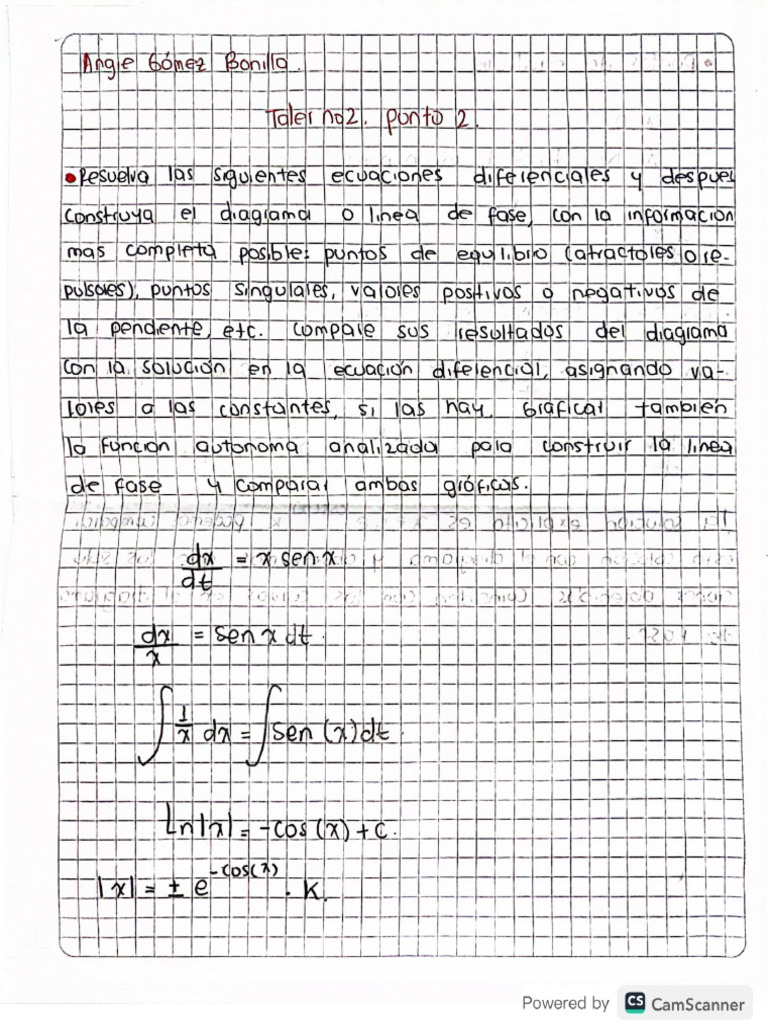 Angie Gómez Bonilla.
Taler no2. punto 2.
• Resuelva las siguientes ecuaciones diferenciales y despues
construya el diagrama o linea de fase, con la informacion
mas completa posible: puntos de equilibrio (atractores o re-
pulsores), puntos singulares, valores positivos o negativos de
la pendiente, etc. compare sus resultados del diagrama
con la solución en la ecuación diferencial, asignando va-
lores a las constantes, si las hay. Graficar también
la funcion autonoma analizada para construir la linea
de fase y comparar ambas gráficas.
dx/dt = x sen x
dx/x = sen x dt.
∫ 1/x dx = ∫ sen (x) dt.
Ln|x| = -cos(x) + c.
|x| = ± e^-cos(x) . K.
Powered by CS CamScanner